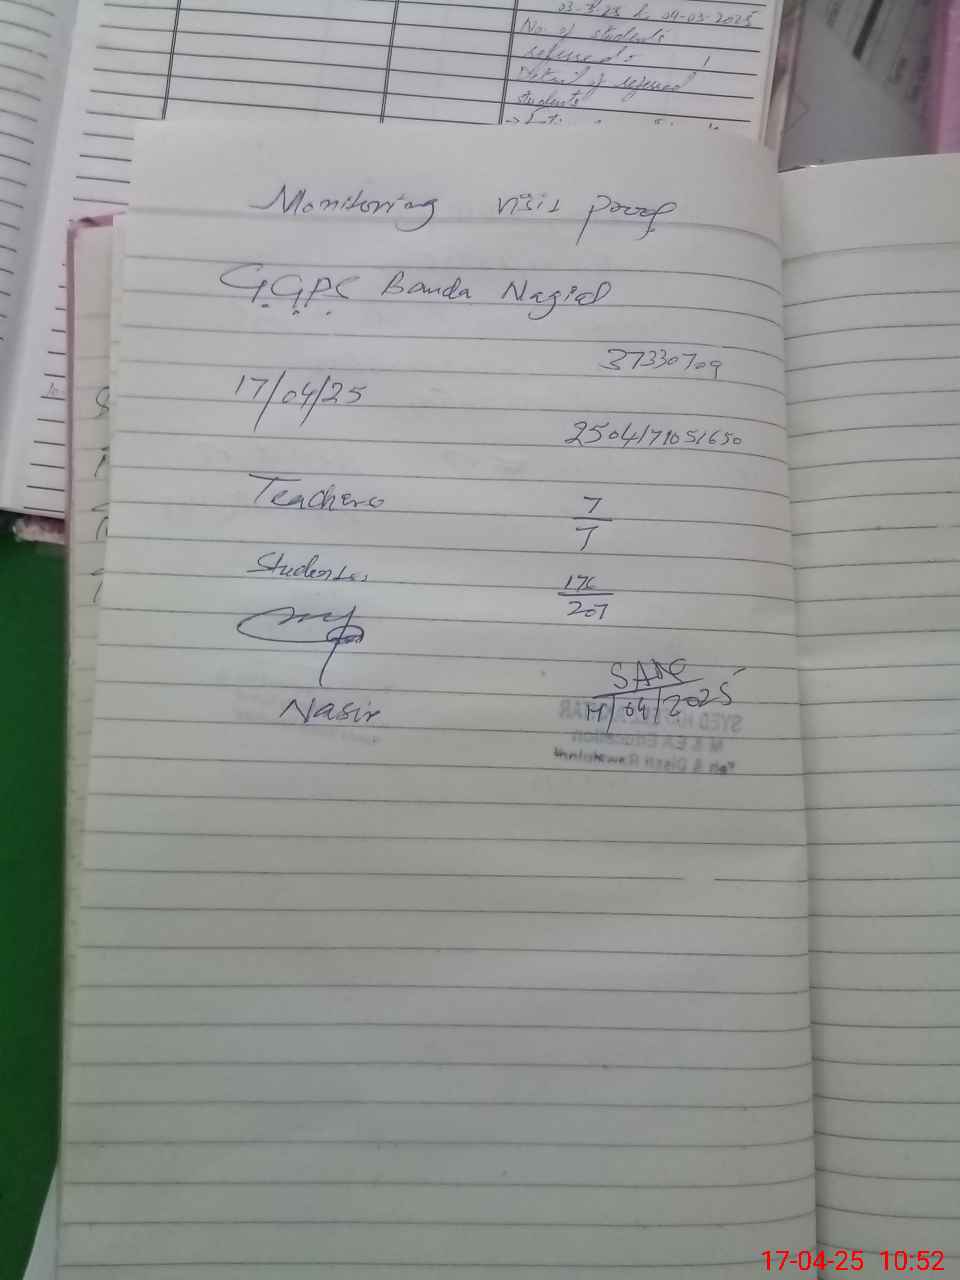 03-3-25 to 04-03-2025
No. of students
refused: 1
Detail of refused
students
Monitoring visit proof
G.G.P.S Banda Nagial
37330709
17/04/25
2504171051650
Teachers 7/7
Students 176/207
Nasir
17/04/2025
M & EA Education
17-04-25 10:52